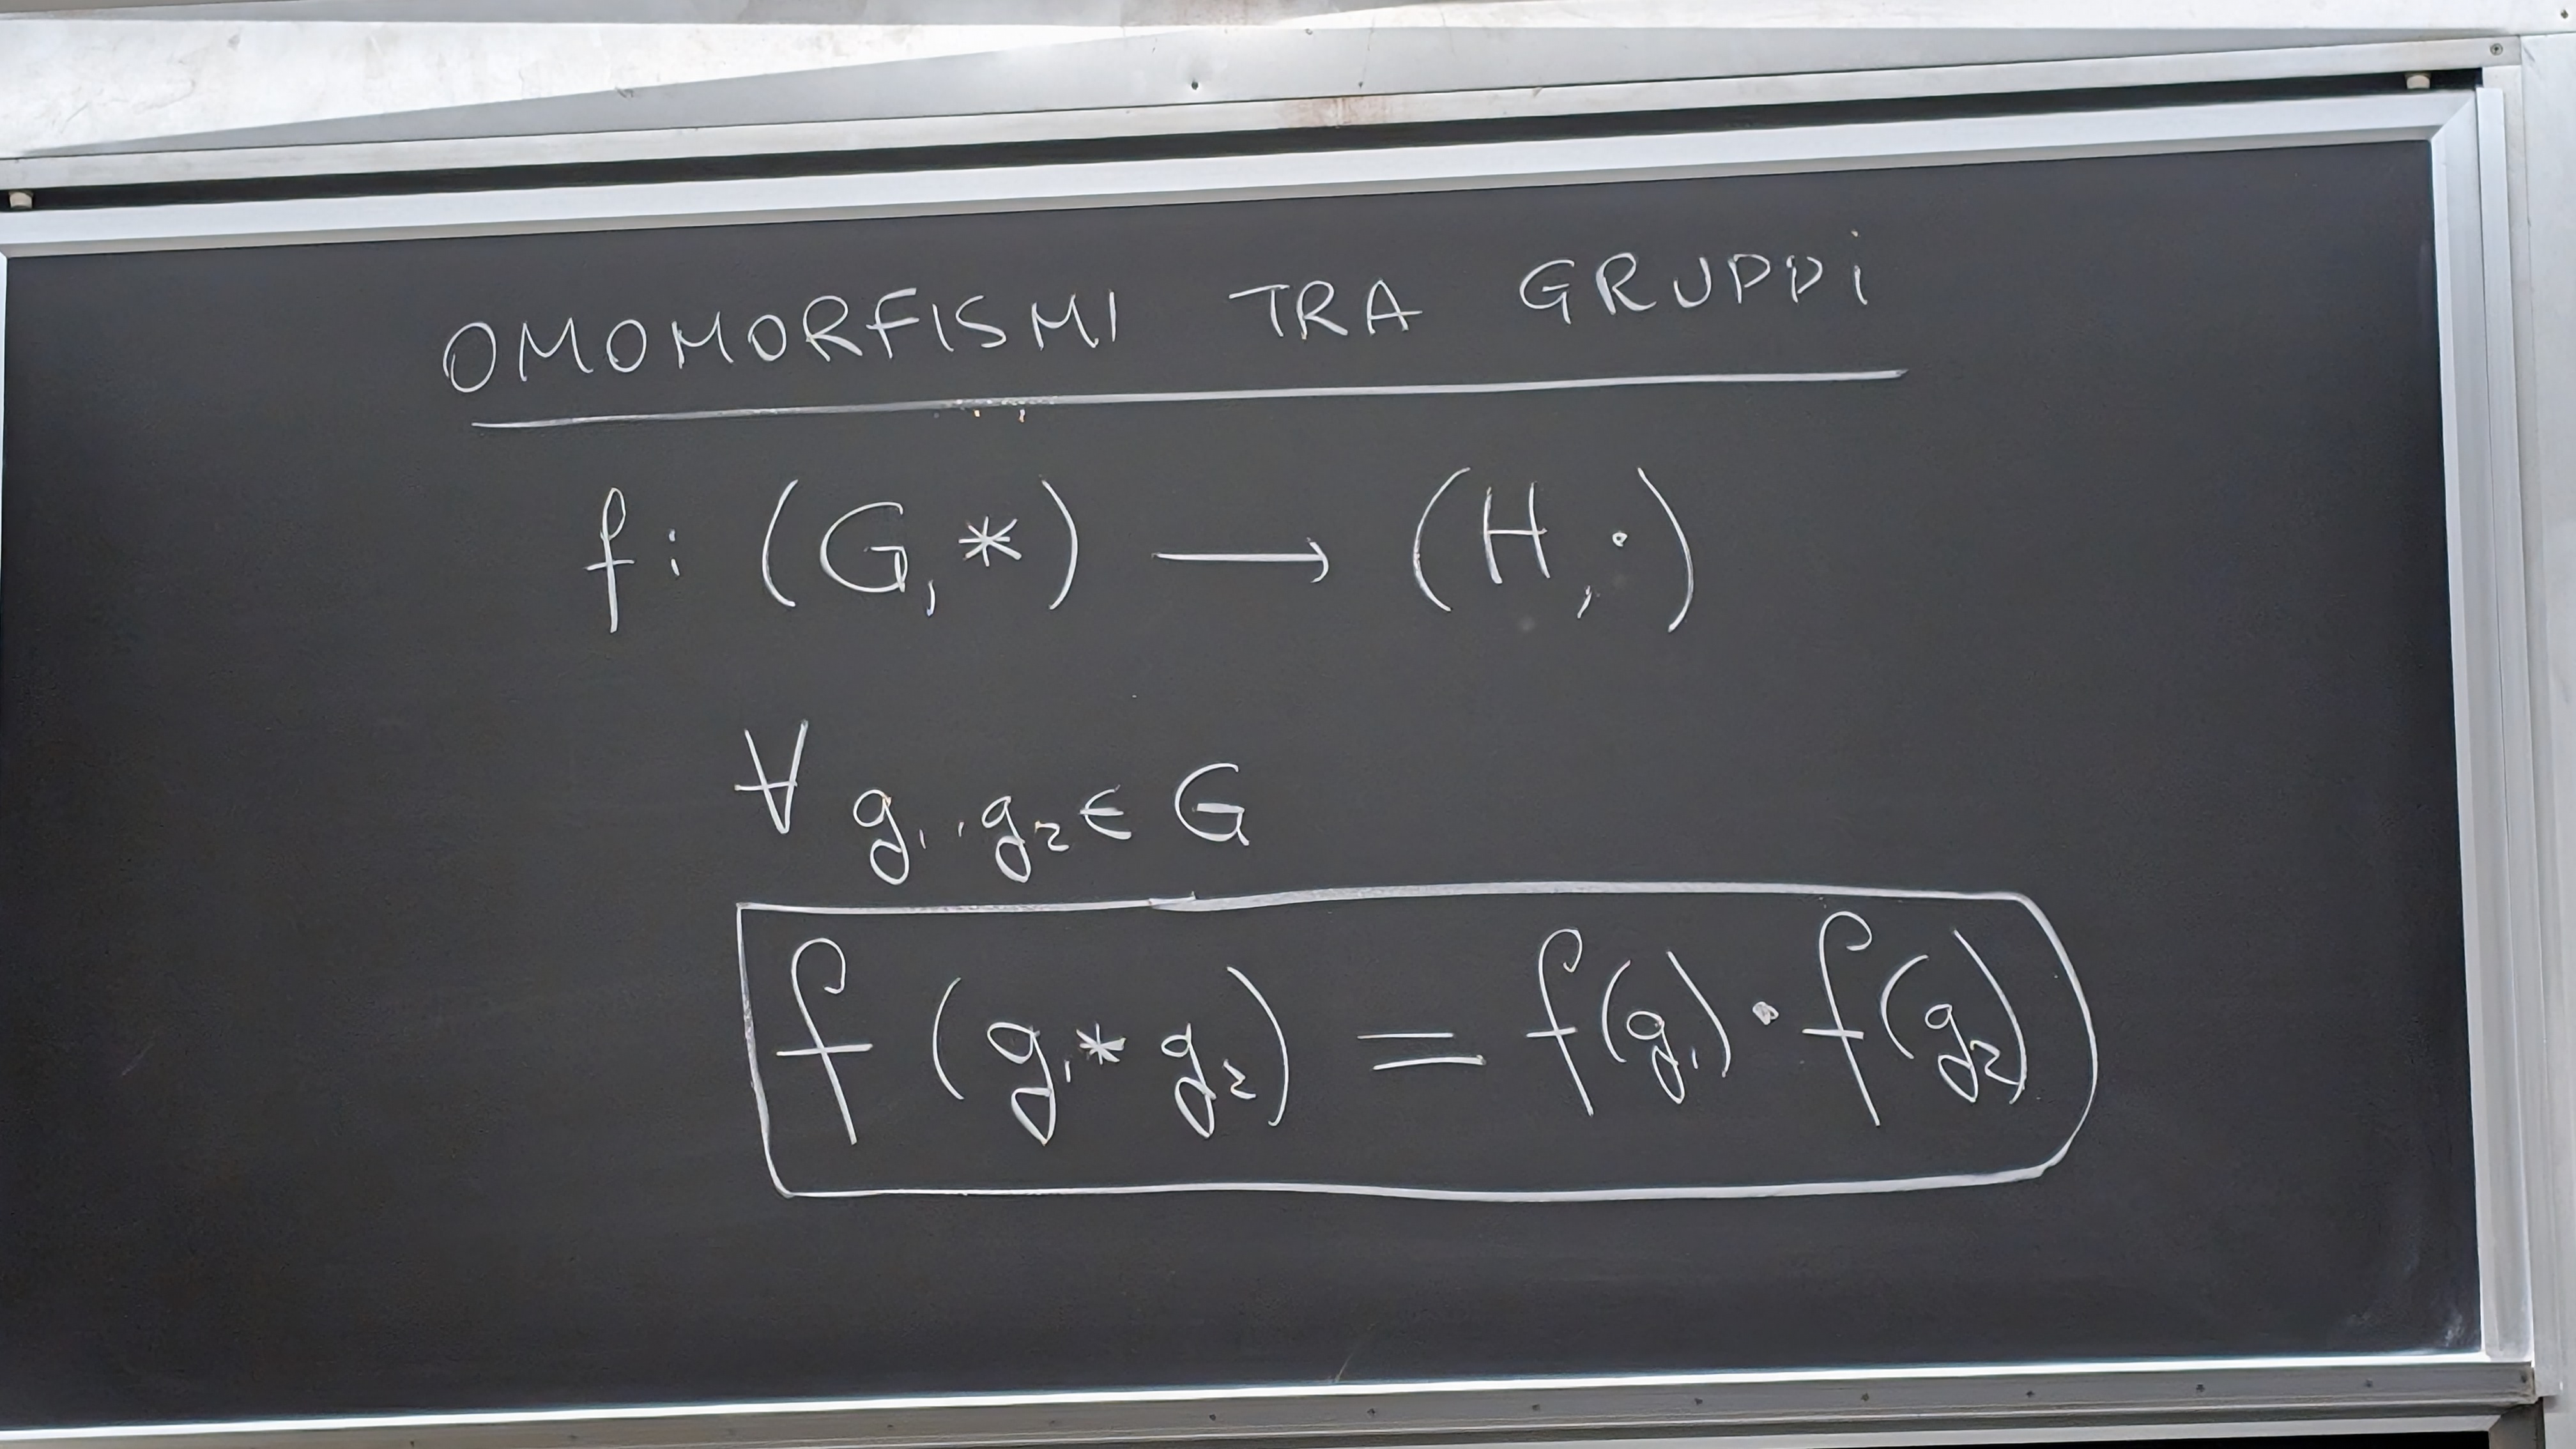 OMOMORFISMI TRA GRUPPi
f: (G, *) ⟶ (H, ·)
∀ g₁, g₂ ∈ G
f (g₁ * g₂) = f(g₁) · f(g₂)